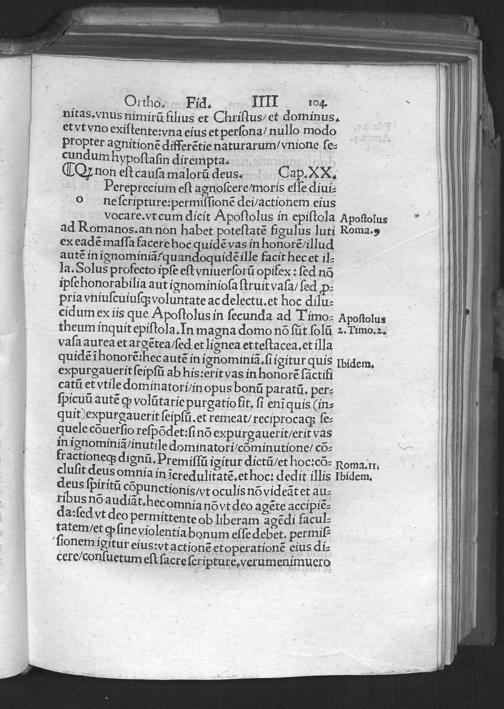 Ortho. Fid. IIII 104
nitas. vnus nimirũ filius et Christus/ et dominus.
et vt vno existente: vna eius et persona/ nullo modo
propter agnitionẽ differẽtie naturarum/ vnione se-
cundum hypostasin dirempta.
¶ Qꝫ non est causa malorũ deus. Cap. XX.
o Pereprecium est agnoscere/ moris esse diui-
ne scripture: permissionẽ dei/ actionem eius
vocare. vt cum dicit Apostolus in epistola Apostolus
ad Romanos. an non habet potestatẽ figulus luti Roma. 9
ex eadẽ massa facere hoc quidẽ vas in honorẽ/ illud
autẽ in ignominiã? quandoquidẽ ille facit hec et il-
la. Solus profecto ipse est vniuersorũ opifex: sed nõ
ipse honorabilia aut ignominiosa struit vasa/ sed ꝓ-
pria vniuscuiusqꝫ voluntate ac delectu. et hoc dilu-
cidum ex iis que Apostolus in secunda ad Timo- Apostolus
theum inquit epistola. In magna domo nõ sũt solũ 2. Timo. 2.
vasa aurea et argẽtea/ sed et lignea et testacea. et illa
quidẽ ĩ honorẽ: hec autẽ in ignominiã. si igitur quis Ibidem.
expurgauerit seipsũ ab his: erit vas in honorẽ sãctifi
catũ et vtile dominatori/ in opus bonũ paratũ. per-
spicuũ autẽ ꝙ volũtarie purgatio fit. si enĩ quis (in-
quit) expurgauerit seipsũ. et remeat/ reciprocaqꝫ se-
quele cõuersio respõdet: si nõ expurgauerit/ erit vas
in ignominiã/ inutile dominatori/ cõminutione/ cõ-
fractioneqꝫ dignũ. Premissũ igitur dictũ/ et hoc: cõ- Roma. 11.
clusit deus omnia in ĩcredulitatẽ. et hoc: dedit illis Ibidem.
deus spiritũ cõpunctionis/ vt oculis nõ videãt et au-
ribus nõ audiãt. hec omnia nõ vt deo agẽte accipiẽ-
da: sed vt deo permittente ob liberam agẽdi facul-
tatem/ et ꝙ sine violentia bonum esse debet. permis-
sionem igitur eius: vt actionẽ et operationẽ eius di-
cere/ consuetum est sacre scripture. verumenimuero